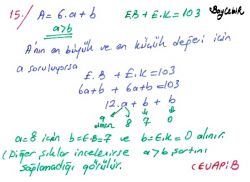 15./ A = 6.a+b EB + E.K = 103
a>b
A'nın en büyük ve en küçük değeri için
a soruluyorsa.
E.B + E.K = 103
6a+b + 6a+b = 103
12.a + b + b
8 7 0
a=8 için b=EB=7 ve b=E.K=0 alınır.
(Diğer şıklar incelenirse a>b şartını
sağlamadığı görülür.)
CEVAP: B